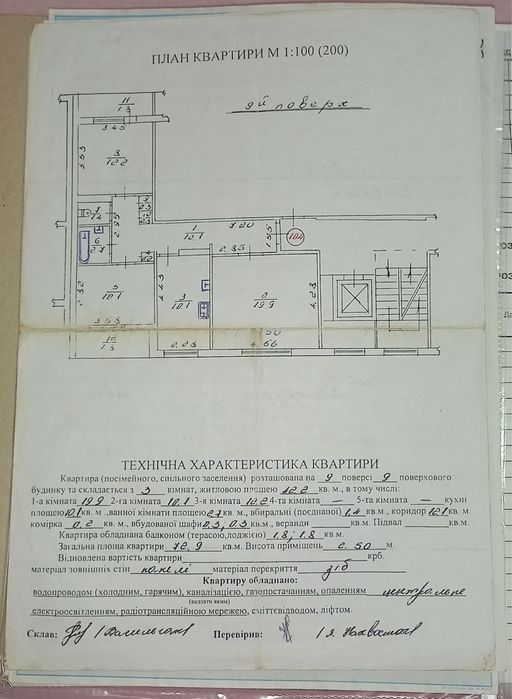 ПЛАН КВАРТИРИ М 1:100 (200)
9й поверх
11
1.3
3.45
3.53
8
12.2
7
1.4
2.95
6
2.7
1
12.1
7.20
1.55
104
2.85
5
10.1
2.92
3.58
10
1.3
4.45
3
10.1
2.23
2
19.9
4.28
4.66
ТЕХНІЧНА ХАРАКТЕРИСТИКА КВАРТИРИ
Квартира (посімейного, спільного заселення) розташована на 9 поверсі 9 поверхового
будинку та складається з 3 кімнат, житловою площею 42.2 кв. м., в тому числі:
1-а кімната 19.9 2-га кімната 10.1 3-я кімната 12.2 4-та кімната — 5-та кімната — кухні
площею 10.1 кв.м., ванної кімнати площею 2.7 кв.м., вбиральні (поєднаної) 1.4 кв.м., коридор 12.1 кв.м.
комірка 0.2 кв. м., вбудованої шафи 0.3, 0.3 кв.м., веранди кв. м. Підвал кв.м.
Квартира обладнана балконом (терасою,лоджією) 1.8; 1.8 кв.м.
Загальна площа квартири 72.9 кв.м. Висота приміщень 2.50 м.
Відновлена вартість квартири крб.
матеріал зовнішніх стін панелі матеріал перекриття з/б
Квартиру обладнано:
водопроводом (холодним, гарячим), каналізацією, газопостачанням, опаленням центральне
(вказати яким)
електроосвітленням, радіотрансляційною мережею, сміттєвідводом, ліфтом.
Склав: Перевірив: